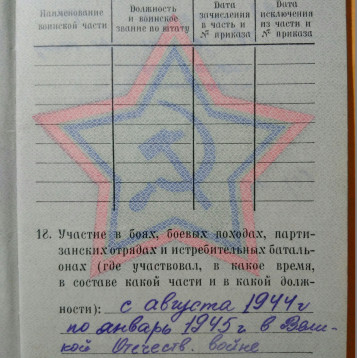 Наименование воинской части
Должность и воинское звание по штату
Дата зачисления в часть и № приказа
Дата исключения из части и № приказа
18. Участие в боях, боевых походах, парти-
занских отрядах и истребительных баталь-
онах (где участвовал, в какое время,
в составе какой части и в какой долж-
ности): с августа 1944 г
по январь 1945 г в Вели-
кой Отечеств. войне